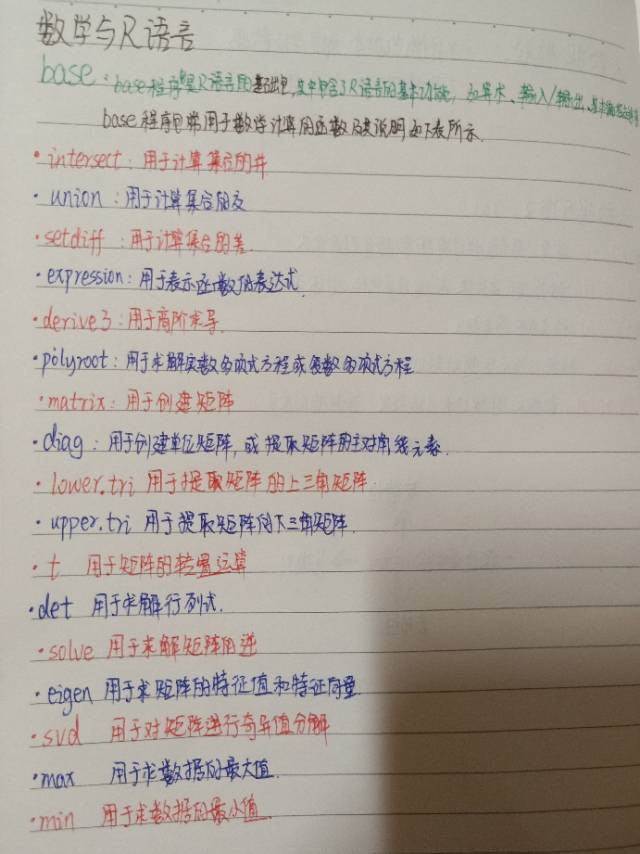 数学与R语言
base:base程序包是R语言的基础包,其中包含了R语言的基本功能,如算术、输入/输出、基本
base程序包常用于数学计算的函数及其说明如下表所示.
·intersect:用于计算集合的并
·union:用于计算集合的交
·setdiff:用于计算集合的差.
·expression:用于表示函数的表达式.
·derive3:用于高阶求导.
·polyroot:用于求解实数多项式方程或复数多项式方程
·matrix:用于创建矩阵
·diag:用于创建单位矩阵,或提取矩阵的主对角线元素.
·lower.tri 用于提取矩阵的上三角矩阵.
·upper.tri 用于提取矩阵的下三角矩阵.
·t 用于矩阵的转置运算
·det 用于求解行列式.
·solve 用于求解矩阵的逆
·eigen 用于求矩阵的特征值和特征向量
·svd 用于对矩阵进行奇异值分解
·max 用于求数据的最大值.
·min 用于求数据的最小值.